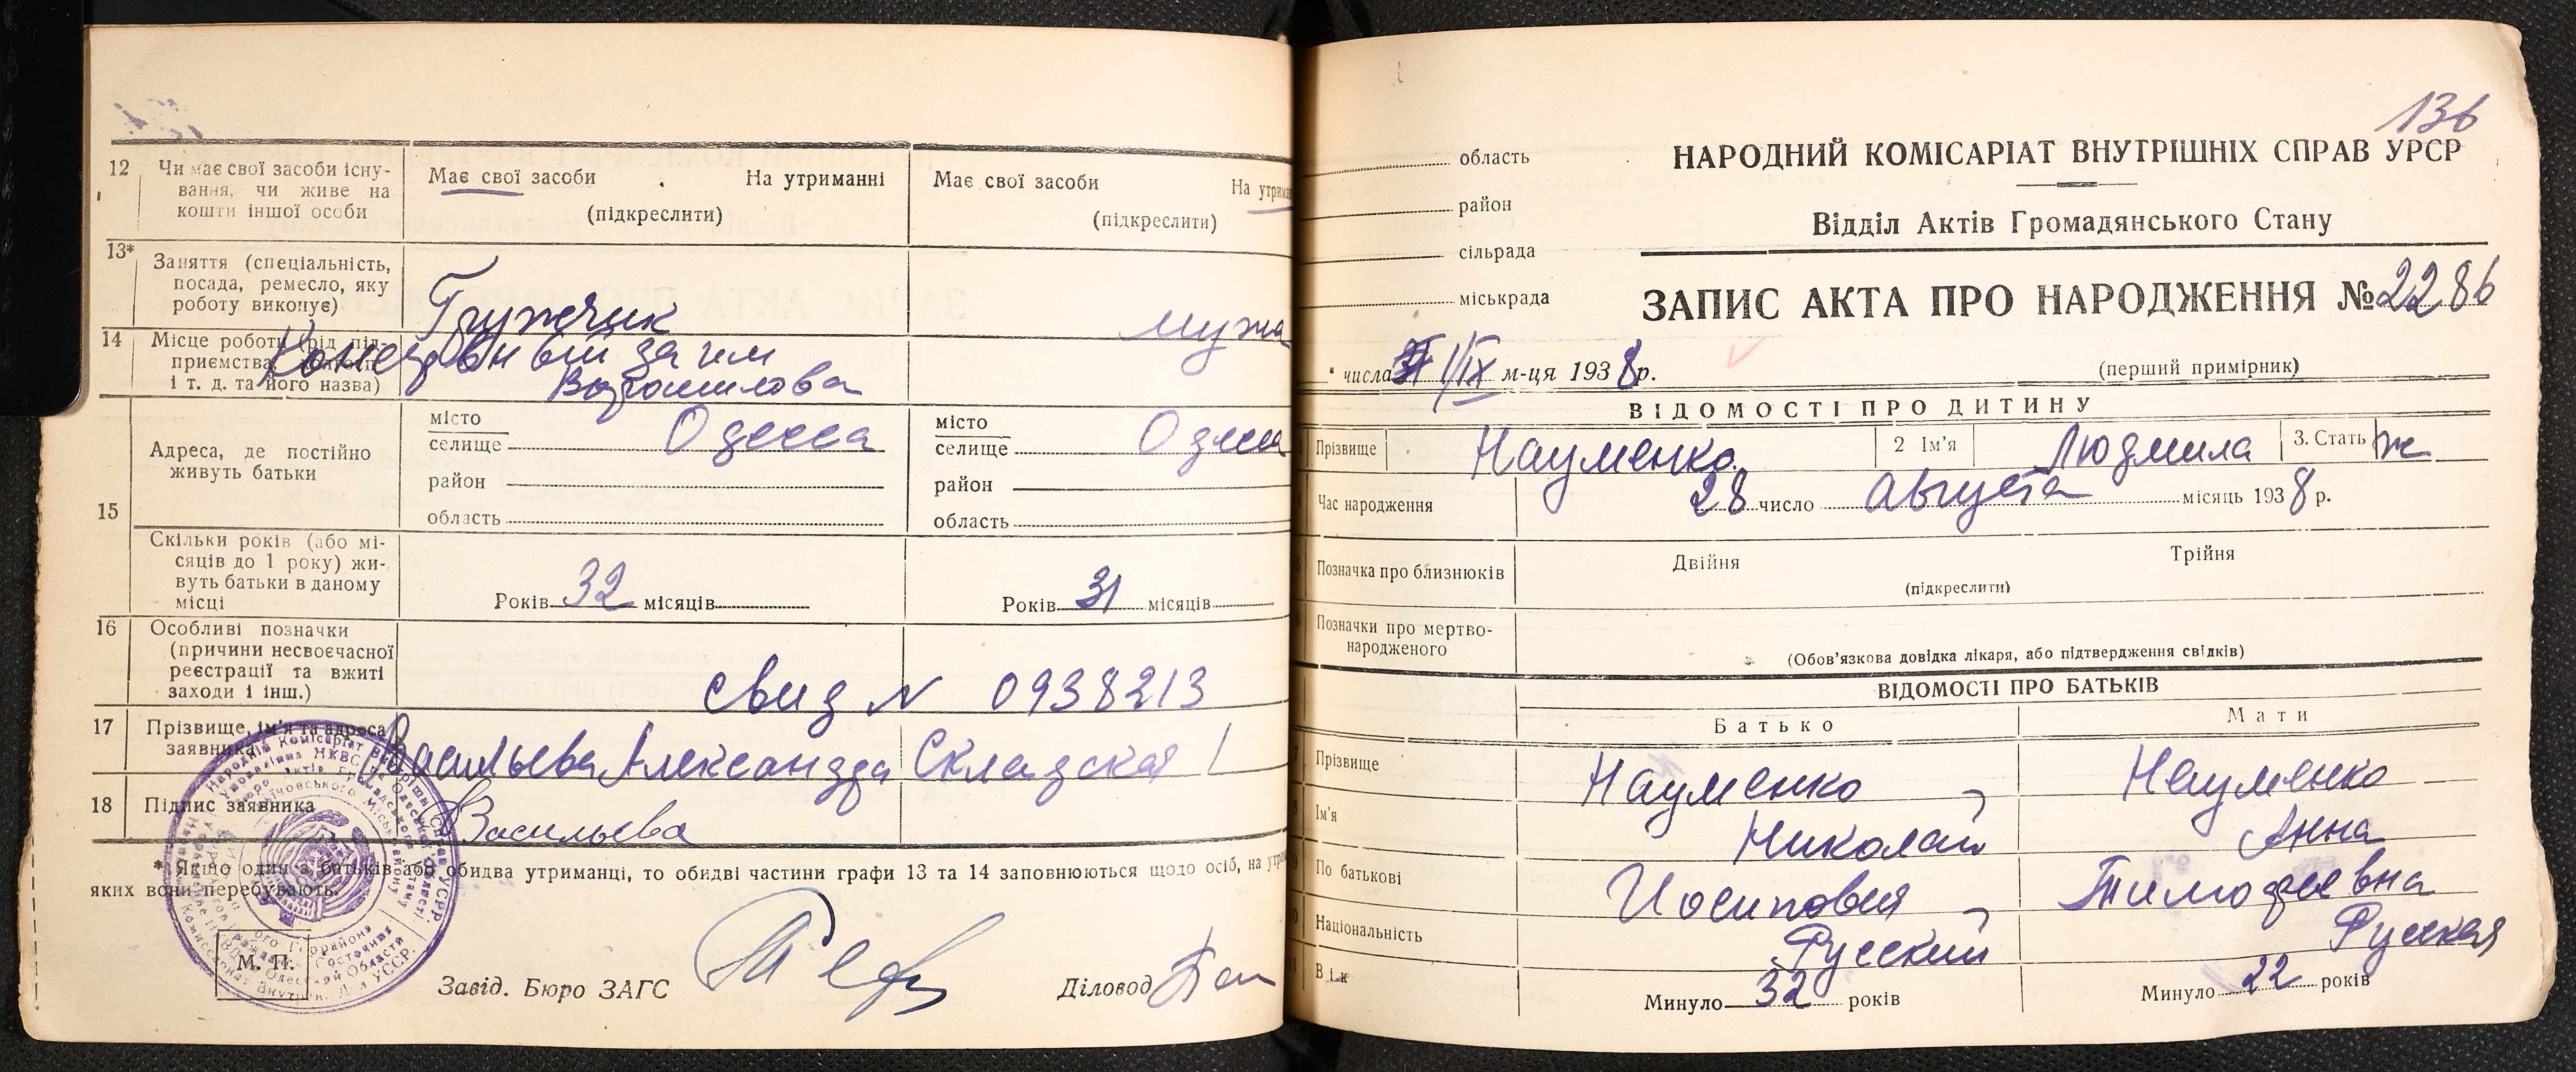 12 Чи має свої засоби існу-
вання, чи живе на
кошти іншої особи
Має свої засоби На утриманні
(підкреслити)
Має свої засоби На утрим
(підкреслити)
13* Заняття (спеціальність,
посада, ремесло, яку
роботу виконує)
Грузчик
мужа
14 Місце роботи (рід під-
приємства,
і т. д. та його назва)
Ворошилова
15 Адреса, де постійно
живуть батьки
місто
селище Одесса
район
область
місто
селище Одесса
район
область
Скільки років (або мі-
сяців до 1 року) жи-
вуть батьки в даному
місці
Років 32 місяців
Років 31 місяців
16 Особливі позначки
(причини несвоєчасної
реєстрації та вжиті
заходи і інш.)
Свид N 0938213
17 Прізвище, ім'я та адреса
заявника
Васильева Александра Складская 1
18 Підпис заявника
Васильева
* Якщо один з батьків або обидва утриманці, то обидві частини графи 13 та 14 заповнюються щодо осіб, на утри
яких вони перебувають.
М. П.
Завід. Бюро ЗАГС
Діловод
136
область
район
сільрада
міськрада
НАРОДНИЙ КОМІСАРІАТ ВНУТРІШНІХ СПРАВ УРСР
Відділ Актів Громадянського Стану
ЗАПИС АКТА ПРО НАРОДЖЕННЯ № 2286
" числа 1/IX м-ця 1938 р.
(перший примірник)
ВІДОМОСТІ ПРО ДИТИНУ
Прізвище Науменко 2 Ім'я Людмила 3. Стать ж
Час народження 28 число Августа місяць 1938 р.
Позначка про близнюків Двійня Трійня
(підкреслити)
Позначки про мертво-
народженого
(Обов'язкова довідка лікаря, або підтвердження свідків)
ВІДОМОСТІ ПРО БАТЬКІВ
Батько Мати
Прізвище Науменко Науменко
Ім'я Николай Анна
По батькові Иосипович Тимофеевна
Національність Русский Русская
Вік Минуло 32 років Минуло 22 років